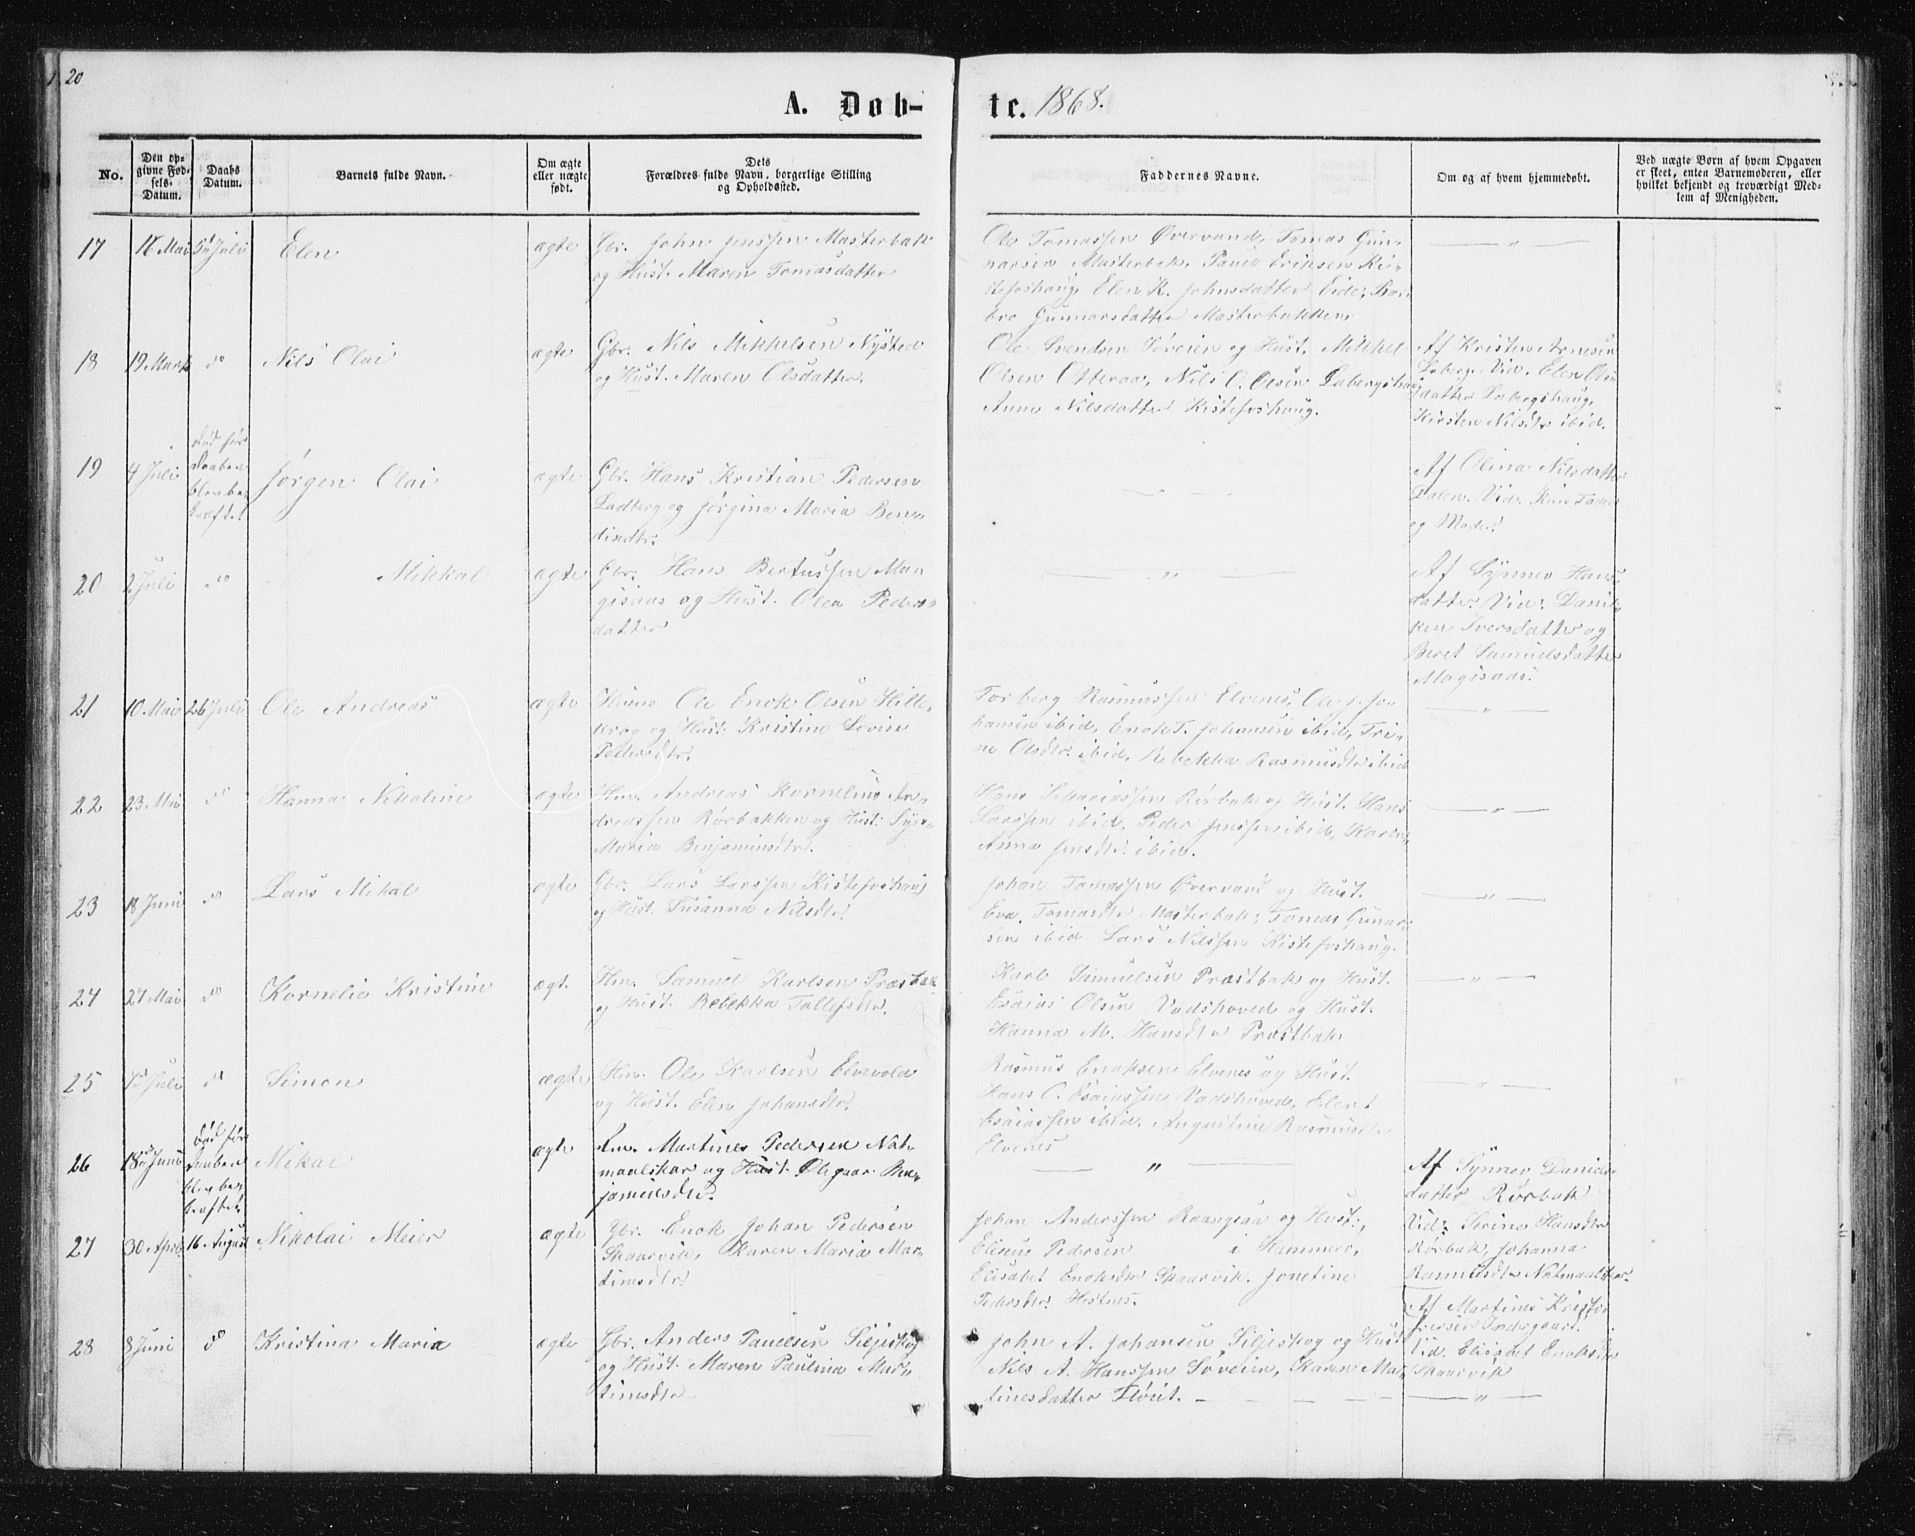 20
A. Døb-
te. 1868.
No.
Den op-
givne Fød-
sels-
Datum.
Daabs
Datum.
Barnets fulde Navn.
Om ægte
eller uægte
født.
Dets
Forældres fulde Navn, borgerlige Stilling
og Opholdssted.
Faddernes Navne.
Om og af hvem hjemmedøbt.
Ved uægte Børn af hvem Opgaven
er skeet, enten Barnemoderen, eller
hvilket bekjendt og troværdigt Med-
lem af Menigheden.
17
Mai
Juli
Elen
ægte
Gbr. John Jenssen Masterbak
og Hust. Maren Tomasdatter
Ole Tomassen Øvervand, Tomas Gun-
narsen Masterbak, Eriksen Ki-
stefoshaug, Elen K. Johnsdatter Eide,
Gunnarsdatter Masterbakken
— " —
18
19 Marts
do
Nils Olai
ægte
Gbr. Nils Mikkelsen Nysted
og Hust. Maren Olsdatter.
Ole Svendsen Søveien og Hust. Mikkel
Olsen Otteraa, Nils O. Olsen Labergshaug
Anne Nilsdatter Kistefoshaug.
Af Kristen Arnesen
Laberg. Vid. Elen Ols-
datter Labergshaug,
Kirsten Nilsdtr ibid.
19
4 Juli
Død før
Daaben
blev be-
kræftet
Jørgen Olai
ægte
Gbr. Hans Kristian Pedersen
Ladberg og Jørgina Maria Ben-
dtr.
— " —
Af Olina Nilsdatter
Dalen. Vid.
og Moder.
20
2 Juli
do
Mikkal
ægte
Gbr. Hans Bertussen Ma-
gisaas og Hust. Olea Peders-
datter
— " —
Af Synnev Hans-
datter. Vid: Danil-
ken Iversdatter og
Beret Samuelsdatter
Magisaas.
21
10 Mai
26 Juli
Ole Andreas
ægte
Ole Enok Olsen Hille-
krog og Hust. Kristine Lovise
Pettersdtr.
Torberg Rasmussen Elvenes, Ole J. Jo-
hansen ibid, Enok T. Johansen ibid, Tri-
ne Olsdtr. ibid, Rebekka Rasmusdtr ibid
— " —
22
23 Mai
do
Hanna Nikoline
ægte
Hm. Andreas Kornelius An-
dreassen Rørbakken og Hust.
Maria Benjaminsdtr.
Hans Sakariassen Rørbak og Hust. Hans
Larssen ibid, Peder Jenssen ibid, Karen
Anna Jensdtr. ibid.
— " —
23
18 Juni
do
Lars Mikal
ægte
Gbr. Lars Larssen Kistefoshaug
og Hust. Susanna Nilsdtr.
Johan Tomassen Øvervand og Hust.
Eva. Tomasdtr Masterbak, Tomas Gunar-
sen ibid Lars Nilssen Kistefoshaug.
— " —
24
27 Mai
do
Kornelie Kristine
ægt.
Hm. Samuel Karlsen Præstbak
og Hust. Rebekka Tollefsdtr.
Karl Samuelsen Præstbak og Hust.
Esaias Olsen Vadshoved og Hust.
Hanna M. Hansdtr Præstbak
— " —
25
Juli
do
Simon
ægte
Hm. Ole Karlsen Elvevold
og Hust. Elen Johansdtr.
Rasmus Enoksen Elvenes og Hust.
Hans O. Esaiassen Vadshoved, Elert
Esaiassen ibid, Augustine Rasmusdtr
Elvenes
— " —
26
18 Juni
Død før
Daaben
blev be-
kræftet
Mikal
ægte
Martines Pedersen Nat-
maalskar og Hust. Olegaar Ben-
jaminsdtr.
— " —
Af Synnev Daniels-
datter Rørbak
Vid: Serine Hansdtr
Rørbak, Johanna
Rasmusdtr Natmaalskar
27
30 April
16 August
Nikolai Meier
ægte
Gbr. Enok Johan Pedersen
Skaarvik, Karen Maria Mar-
tinsdtr.
Johan Anderssen Raangsaa og Hust.,
Eliseus Pedersen i Hammerø,
Elisabet Enoksdtr Skaarvik, Jonetine
Pedersdtr. Hestnes.
Af Martines Kristof-
fersen
Vid. Elisabet Enoksdtr
Skaarvik
28
8 Juni
do
Kristina Maria
ægte
Gbr. Anders Paulsen Siljeskog
og Hust. Maren Paulina Mar-
tinsdtr
John A. Johansen, Siljeskog og Hust
Nils A. Hanssen Søveien, Karen Mar-
tinesdatter Fløut. —
— " —